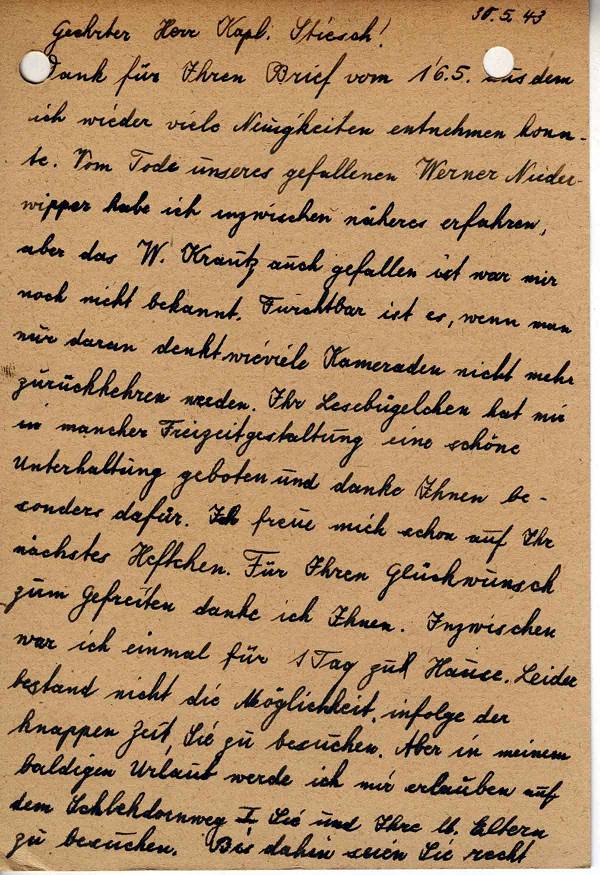 30.5.43
Geehrter Herr Kapl. Stiesch!
Dank für Ihren Brief vom 16.5. aus dem
ich wieder viele Neuigkeiten entnehmen konn-
te. Vom Tode unseres gefallenen Werner Nieder-
wipper habe ich inzwischen näheres erfahren,
aber das W. Krautz auch gefallen ist war mir
noch nicht bekannt. Furchtbar ist es, wenn man
nur daran denkt wieviele Kameraden nicht mehr
zurückkehren werden. Ihr Lesebügelchen hat mir
in mancher Freizeitgestaltung eine schöne
Unterhaltung geboten und danke Ihnen be-
sonders dafür. Ich freue mich schon auf Ihr
nächstes Heftchen. Für Ihren Glückwunsch
zum Gefreiten danke ich Ihnen. Inzwischen
war ich einmal für 1 Tag zu Hause. Leider
bestand nicht die Möglichkeit, infolge der
knappen Zeit, Sie zu besuchen. Aber in meinem
baldigen Urlaub werde ich mir erlauben auf
dem Schlehdornweg Sie und Ihre lb. Eltern
zu besuchen. Bis dahin seien Sie recht